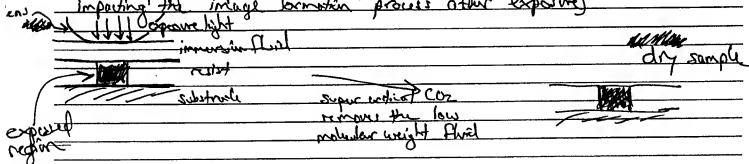 impacting the image formation process other exposures
lens
exposure light
immersion fluid
resist
substrate
exposed
region
super critical CO2
removes the low
molecular weight fluid
dry sample